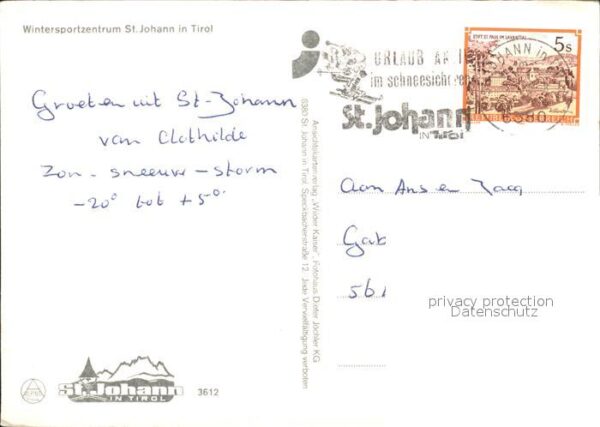 Wintersportzentrum St. Johann in Tirol
Groeten uit St-Johann
van Clothilde
Zon-sneeuw-storm
-20° tot +5°
STIFT ST. PAUL IM LAVANTTAL
5s
REPUBLIK
URLAUB AN
im schneesicheren
St. Johann
IN TIROL
JOHANN in
6380
Ansichtkartenverlag „Wilder Kaiser", Fotohaus Dieter Jöchler KG
6380 St. Johann in Tirol, Speckbacherstraße 12, Jede Vervielfältigung verboten
Aan Ans en Jacq
Gat
561
privacy protection
Datenschutz
St. Johann
IN TIROL
3612